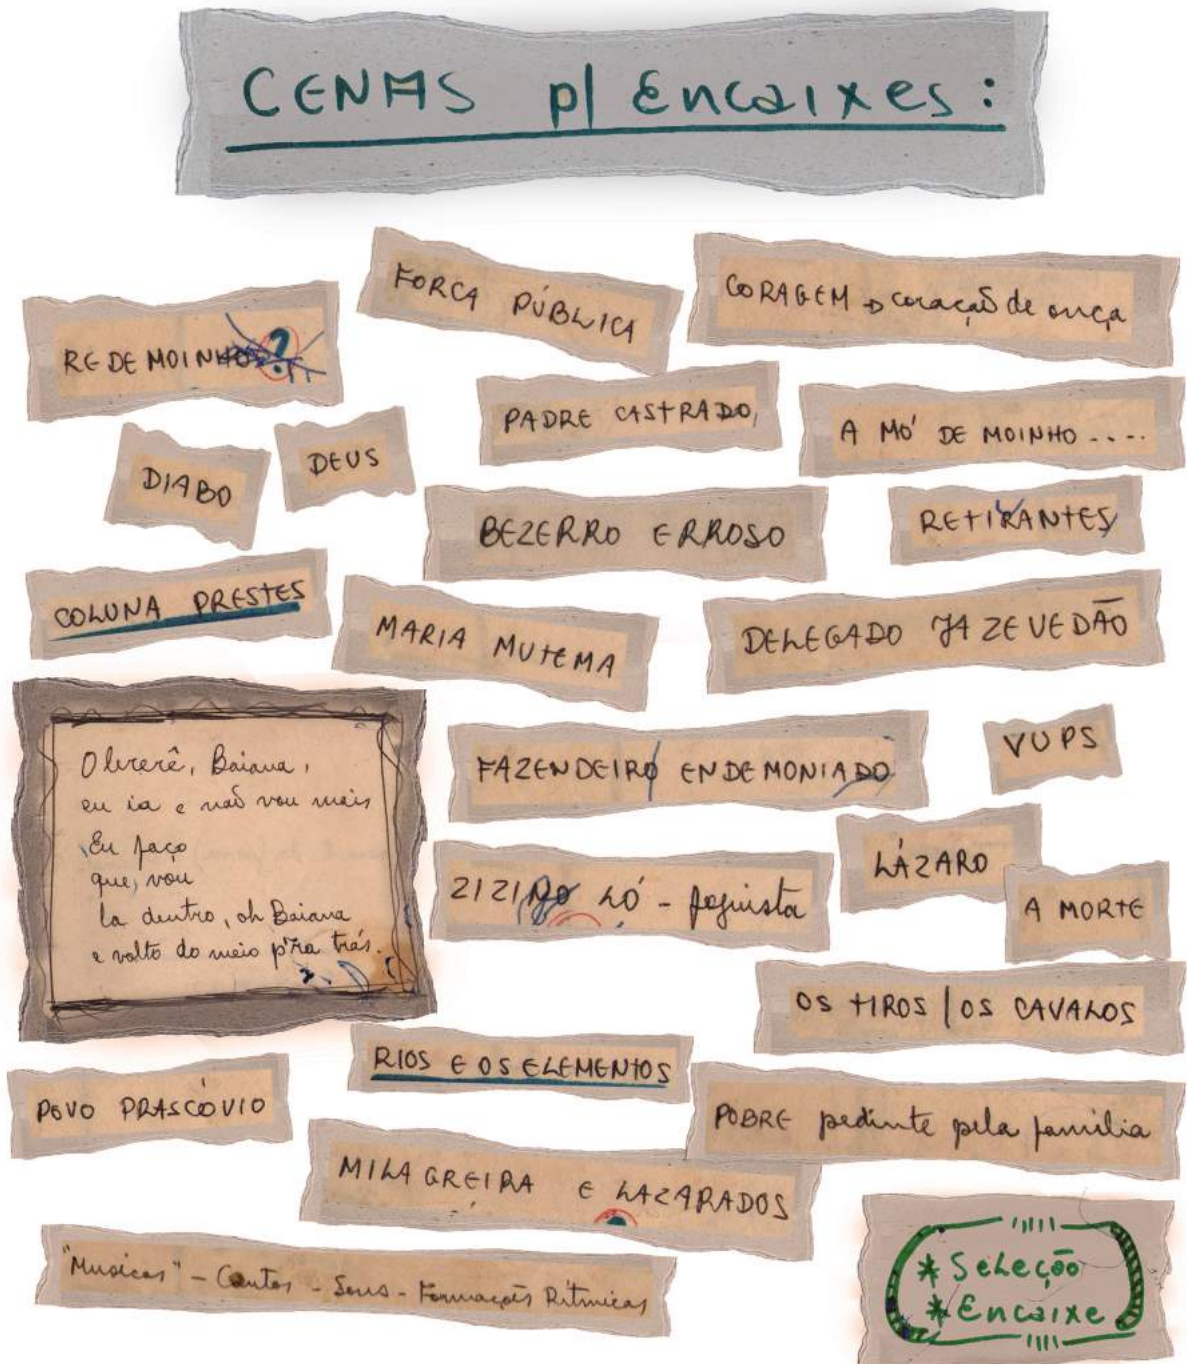 CENAS p/ Encaixes:
FORCA PÚBLICA
CORAGEM → coração de onça
REDEMOINHO ?
PADRE CASTRADO,
A MÓ DE MOINHO ....
DIABO
DEUS
BEZERRO ERROSO
RETIRANTES
COLUNA PRESTES
MARIA MUTEMA
DELEGADO JAZEVEDÃO
Olererê, Baiana,
eu ia e não vou mais
Eu faço
que, vou
la dentro, oh Baiana
e volto do meio p'ra trás.
FAZENDEIRO ENDEMONIADO
VUPS
ZIZI LÓ - foguista
LÁZARO
A MORTE
OS TIROS / OS CAVALOS
RIOS E OS ELEMENTOS
POVO PRASCÓVIO
POBRE pedinte pela família
MILAGREIRA E LAZARADOS
"Musicas" - Cantos - Sons - Formações Rítmicas
* Seleção
* Encaixe